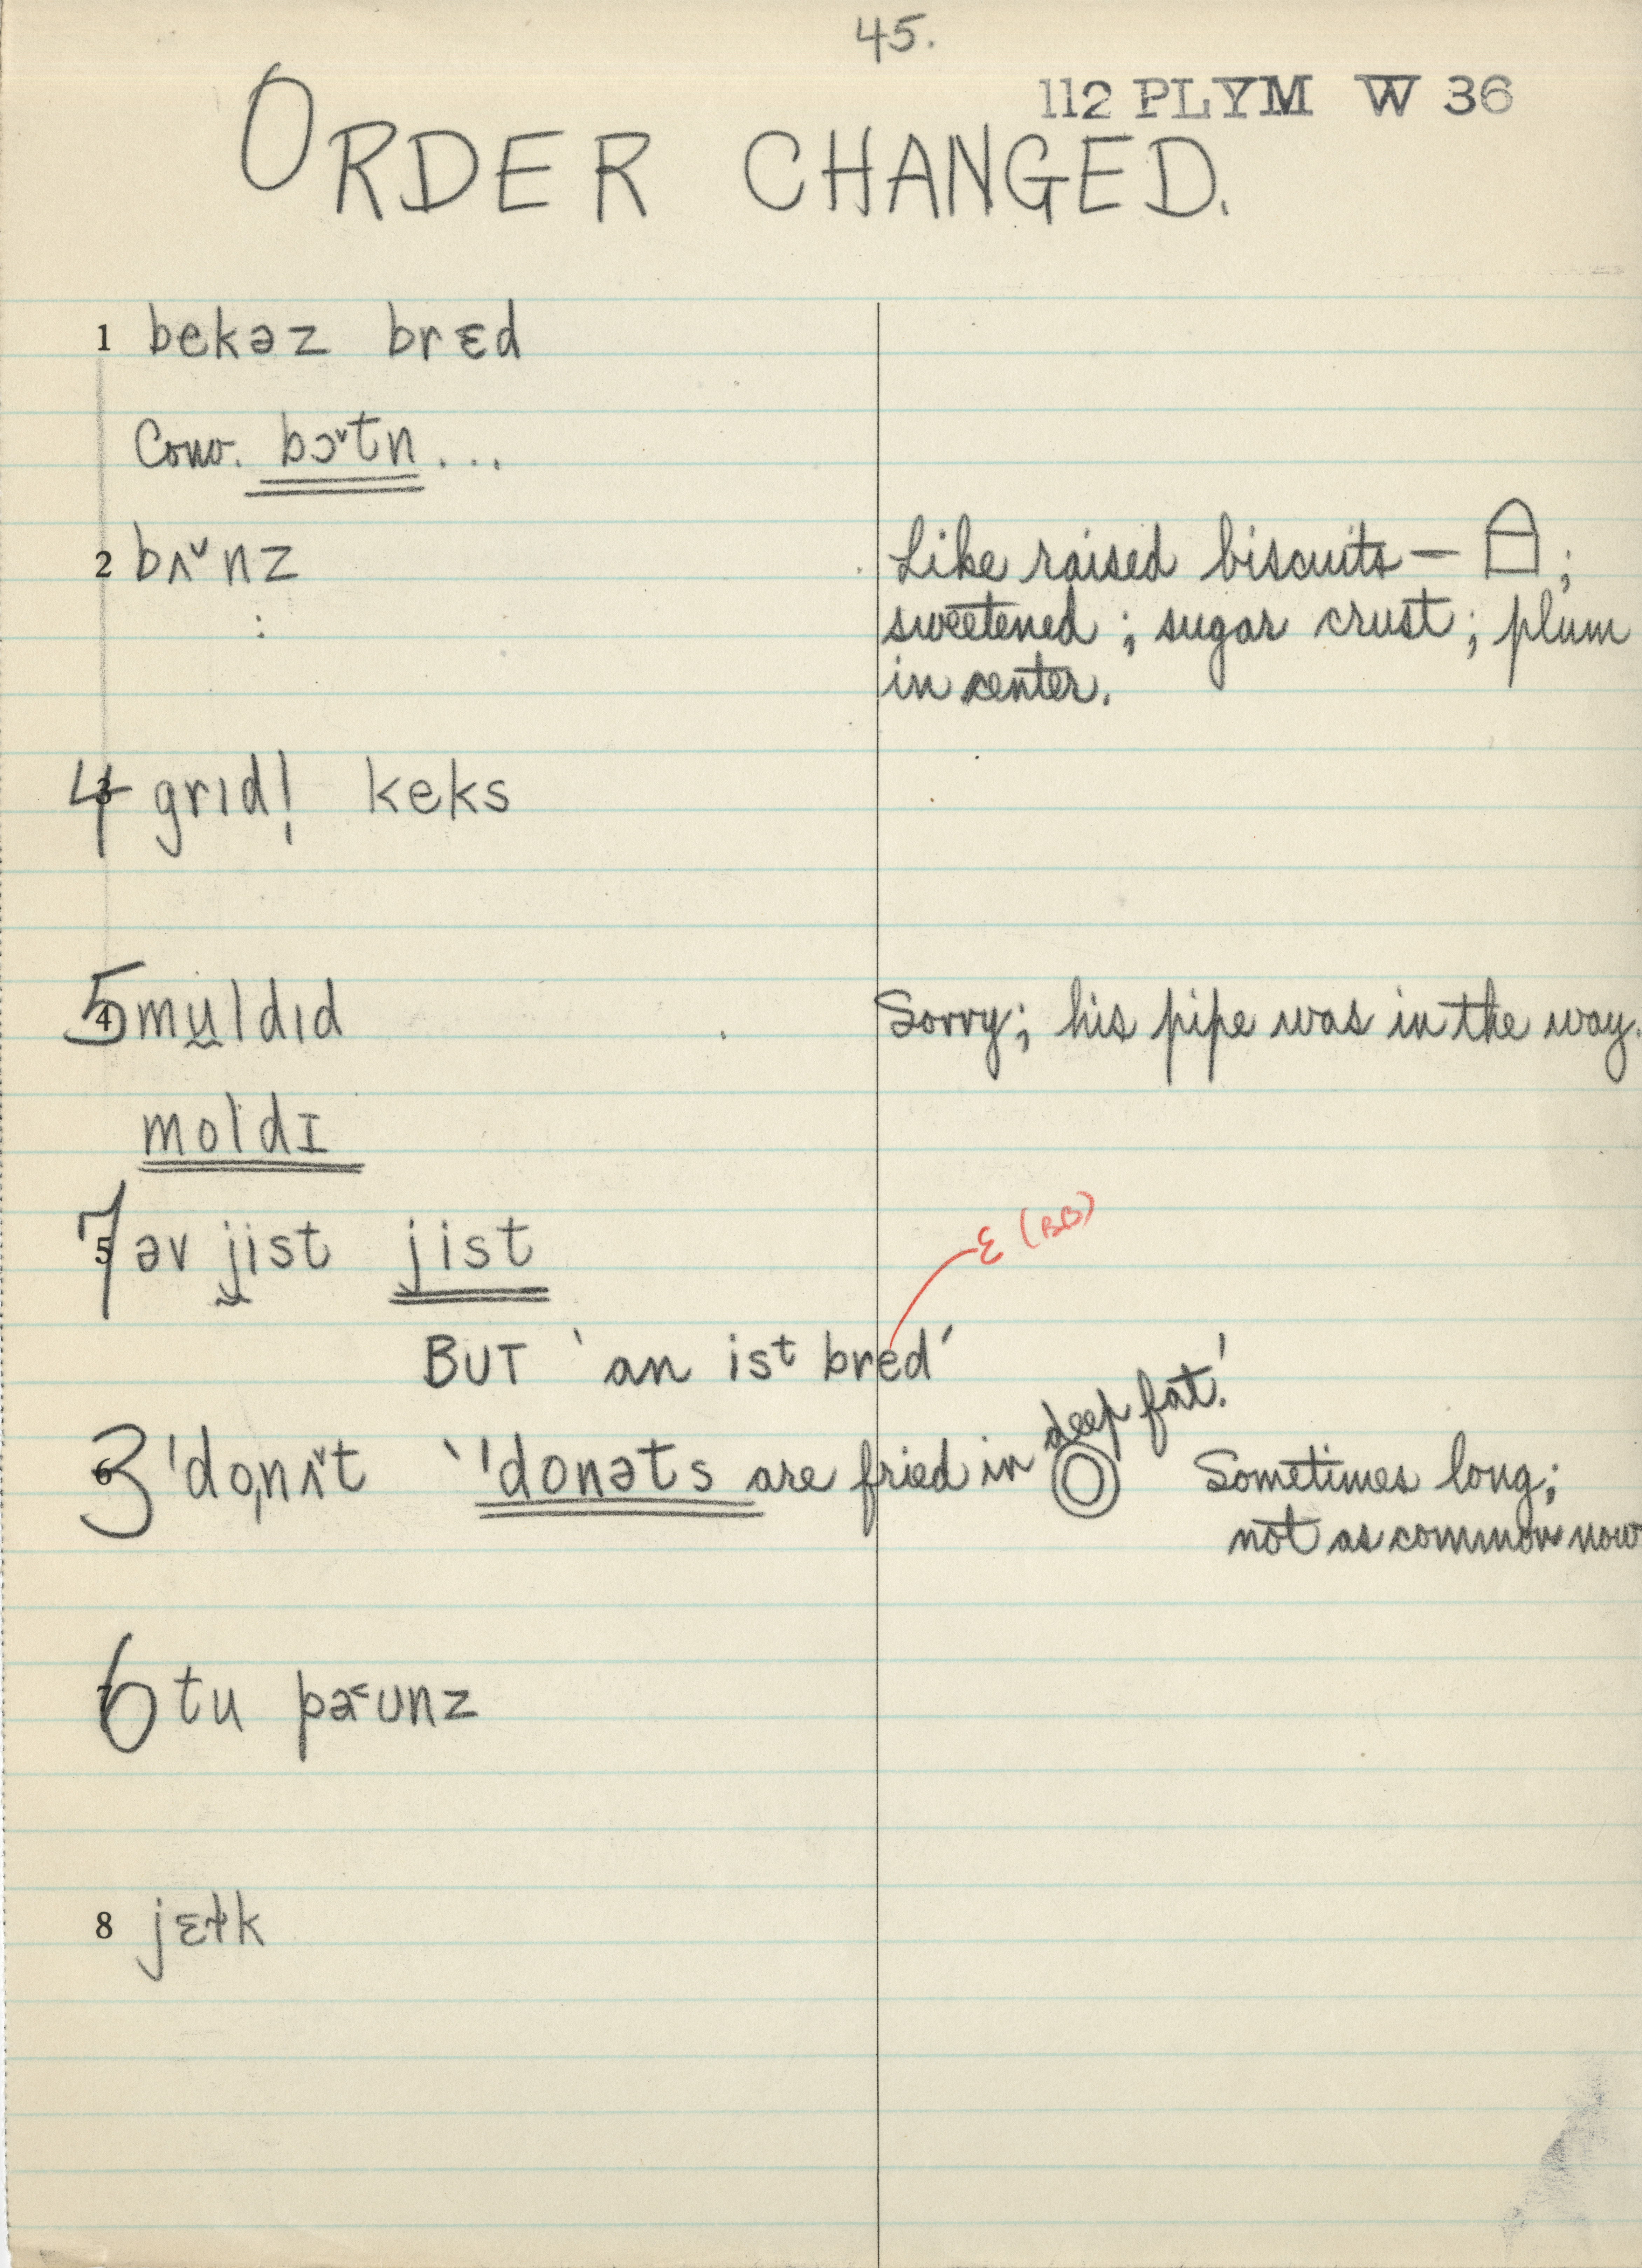 45.
112 PLYM W 36
ORDER CHANGED.
1 bekəz brɛd
Conv. bɔˇtn...
2 bʌˇnz Like raised biscuits — ;
sweetened ; sugar crust ; plum
in center.
4 3 grɪdl̩ keks
5 4 mu̬ldɪd Sorry; his pipe was in the way.
moldɪ
7 5 əv jist jist
ɛ (BB)
BUT 'an ist bred'
3 6 'do̩nʌˇt ''donəts are fried in deep fat.' Sometimes long;
not as common now
6 7 tu pa˂ʊnz
8 jɛɫk